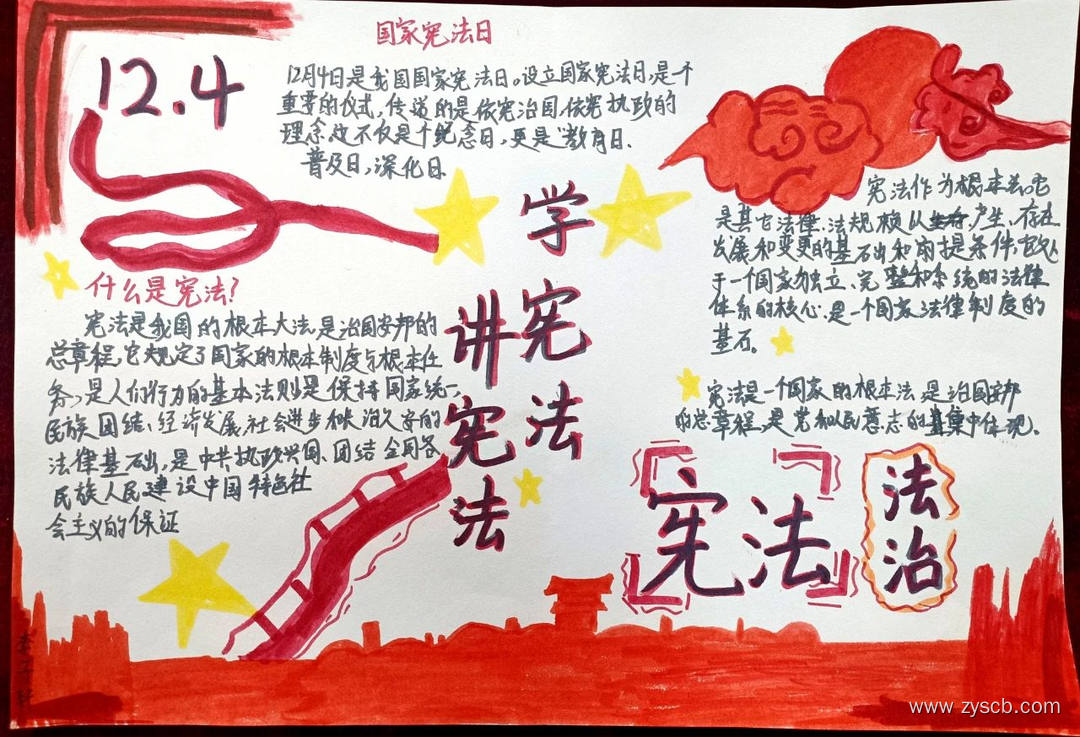 国家宪法日
12.4
12月4日是我国国家宪法日。设立国家宪法日,是一个
重要的仪式,传递的是依宪治国,依宪执政的
理念,这不仅是个纪念日,更是教育日.
普及日,深化日
学宪法
讲宪法
什么是宪法?
宪法是我国的根本大法,是治国安邦的
总章程,它规定了国家的根本制度与根本任
务,是人们行为的基本法则是保持国家统一,
民族团结、经济发展,社会进步和长治久安的
法律基础,是中共执政兴国、团结全国各
民族人民建设中国特色社
会主义的保证
宪法作为根本法。它
是其它法律、法规赖以产生、存在
发展和变更的基石出和前提条件,它处
于一个国家独立、完整和系统的法律
体系的核心是一个国家法律制度的
基石。
宪法是一个国家的根本法,是治国安邦
的总章程,是党和人民意志的集中体现。
宪法
法治
www.zyscb.com